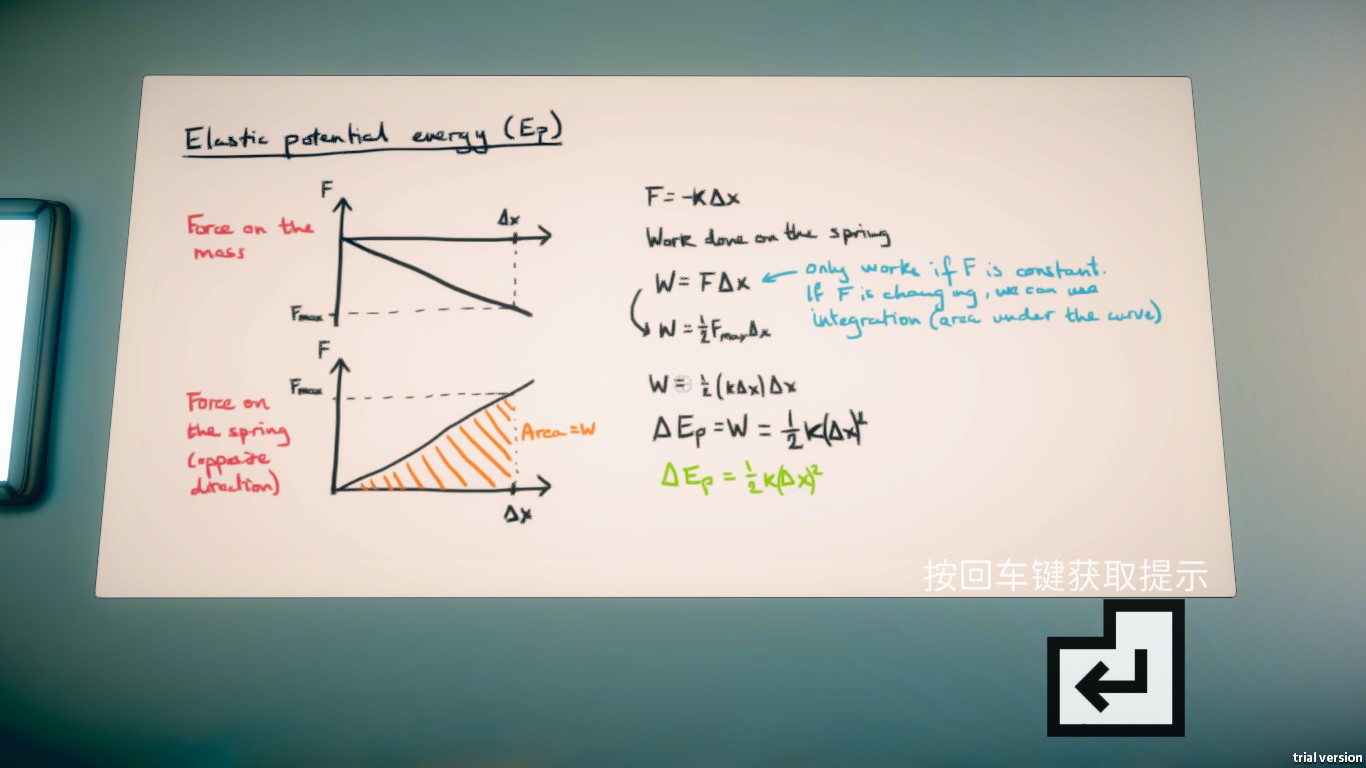 Elastic potential energy (Ep)
F
Force on the
mass
Δx
Fmax
F
Fmax
Force on
the spring
(opposite
direction)
Area = W
Δx
F = -KΔx
Work done on the spring
W = FΔx
only works if F is constant.
If F is changing, we can use
integration (area under the curve)
W = ½FmaxΔx
W = ½(kΔx)Δx
ΔEp = W = ½K(Δx)²
ΔEp = ½K(Δx)²
按回车键获取提示
trial version